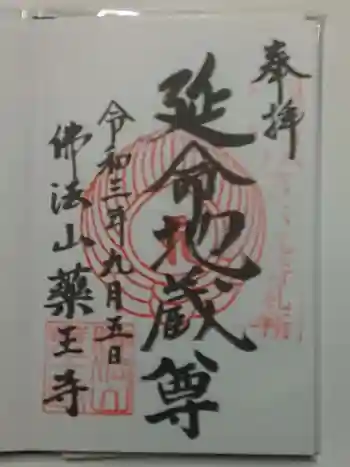 奉拝
延命地蔵尊
令和三年九月五日
佛法山薬王寺